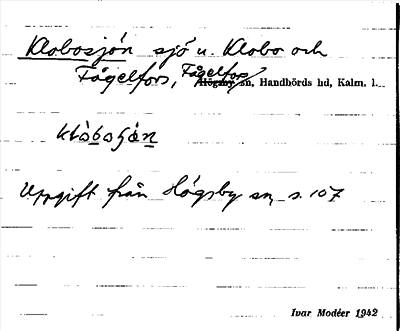 Klobosjön sjö u. Klobo och
Fågelfors, Fågelfors Högsby sn, Handbörds hd, Kalm. l.
klòbosjön
Uppgift från Högsby sn, s. 107
Ivar Modéer 1942